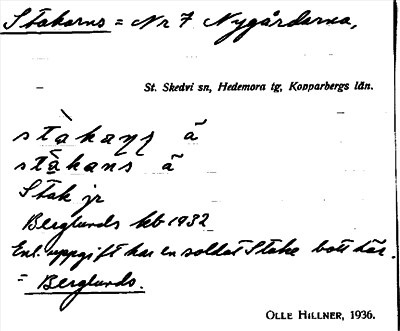 Stakarns = Nr 7 Nygårdarna,
St. Skedvi sn, Hedemora tg, Kopparbergs län.
stàkaṇṣ ã
stàkans ã
Stak jr
Berglunds kb 1932
Enl. uppgift har en soldat Stake bott här.
= Berglunds.
OLLE HILLNER, 1936.